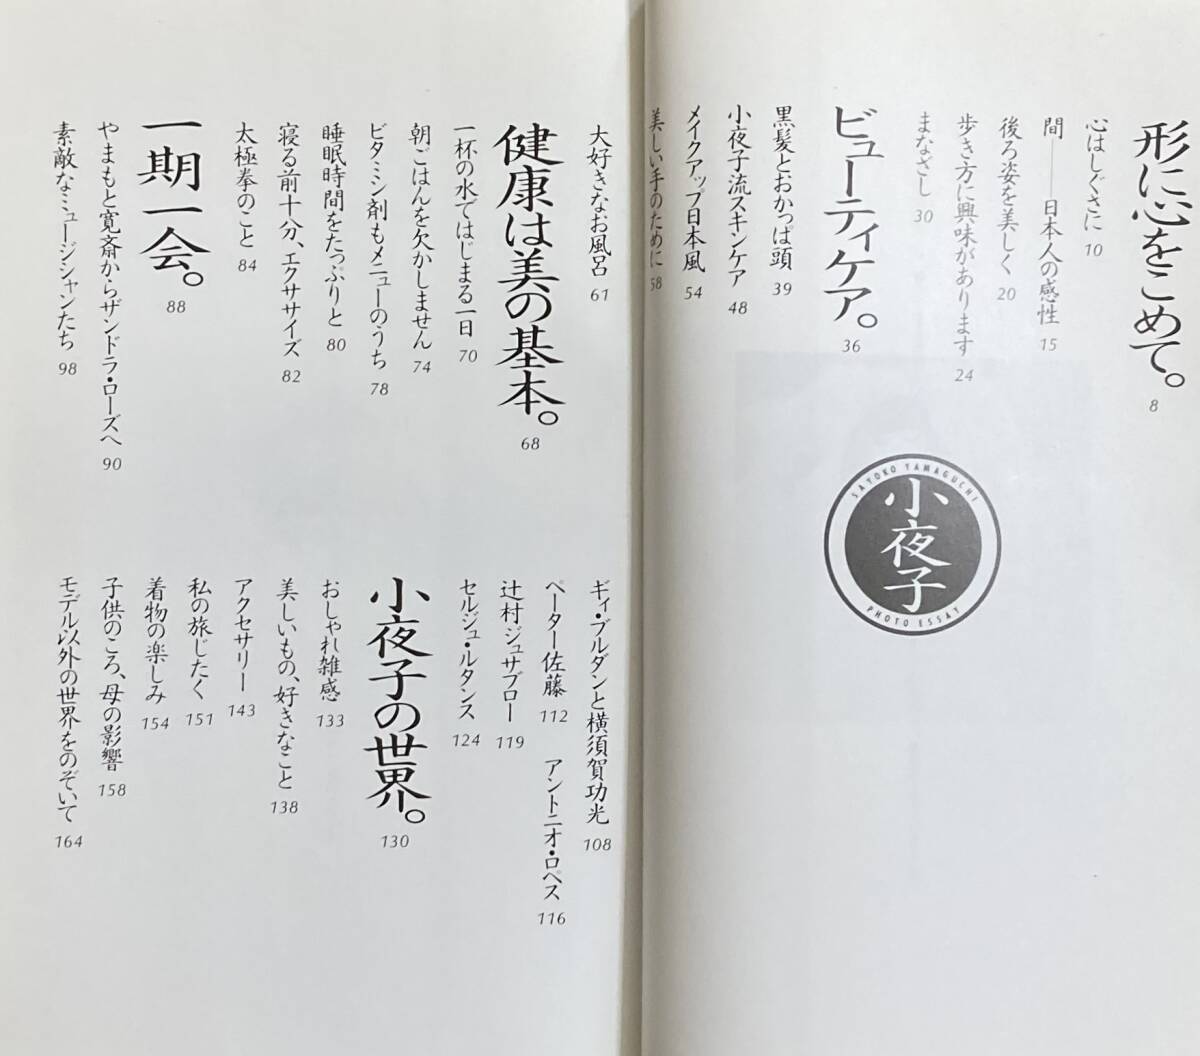 形に心をこめて。 8
心はしぐさに 10
間——日本人の感性 15
後ろ姿を美しく 20
歩き方に興味があります 24
まなざし 30
ビューティケア。 36
黒髪とおかっぱ頭 39
小夜子流スキンケア 48
メイクアップ日本風 54
美しい手のために 58
SAYOKO YAMAGUCHI
小夜子
PHOTO ESSAY
大好きなお風呂 61
健康は美の基本。 68
一杯の水ではじまる一日 70
朝ごはんを欠かしません 74
ビタミン剤もメニューのうち 78
睡眠時間をたっぷりと 80
寝る前十分、エクササイズ 82
太極拳のこと 84
一期一会。 88
やまもと寛斎からザンドラ・ローズへ 90
素敵なミュージシャンたち 98
ギィ・ブルダンと横須賀功光 108
ペーター佐藤 112 アントニオ・ロペス 116
辻村ジュサブロー 119
セルジュ・ルタンス 124
小夜子の世界。 130
おしゃれ雑感 133
美しいもの、好きなこと 138
アクセサリー 143
私の旅じたく 151
着物の楽しみ 154
子供のころ、母の影響 158
モデル以外の世界をのぞいて 164